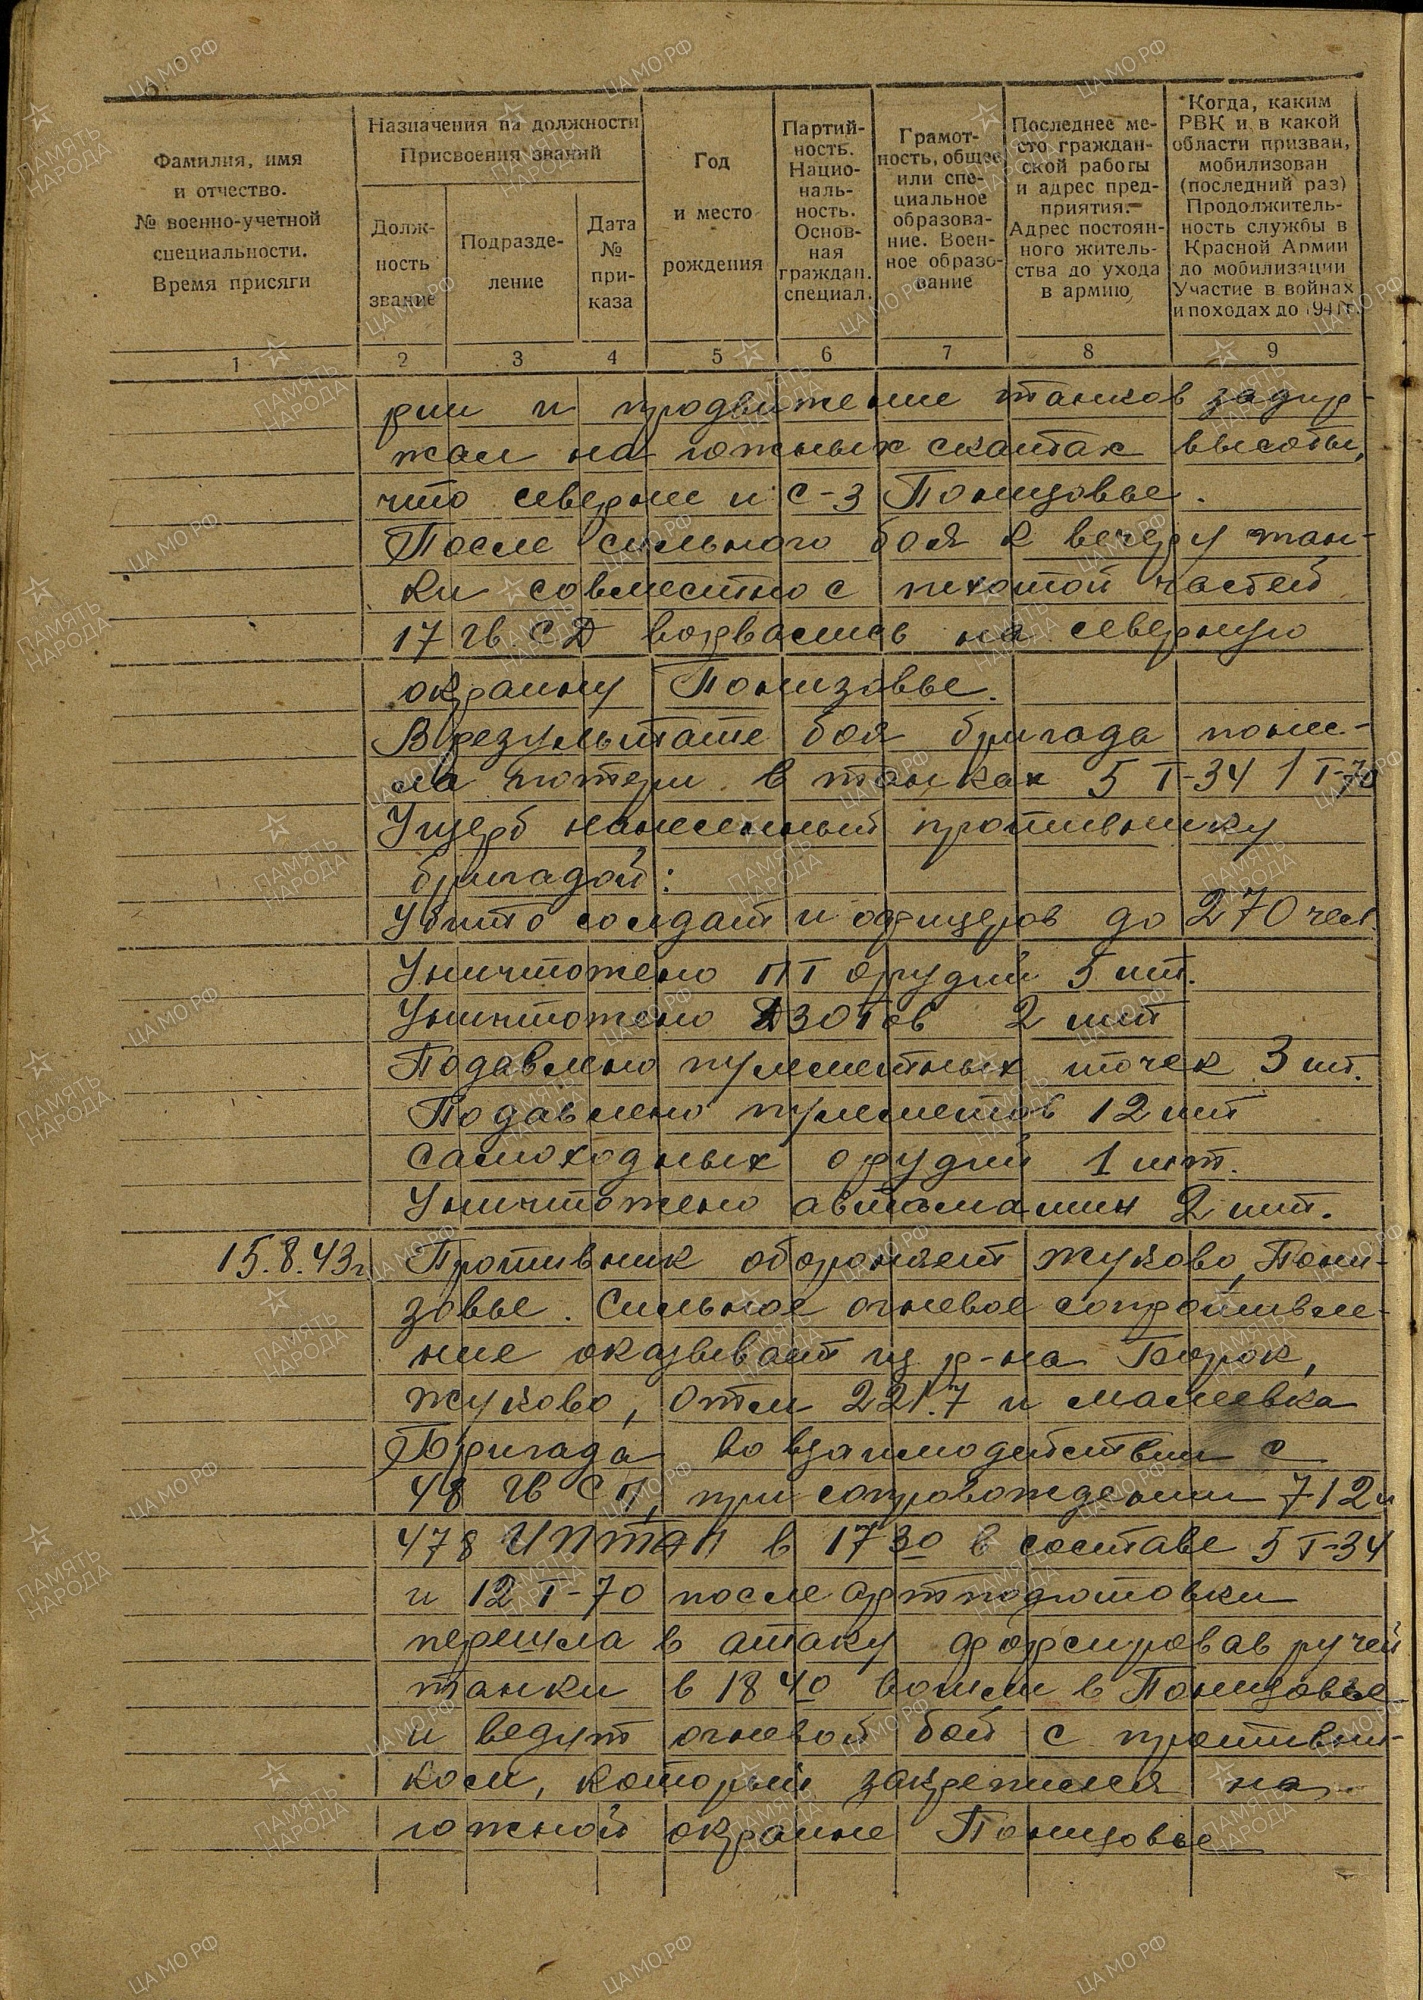 Фамилия, имя
и отчество.
№ военно-учетной
специальности.
Время присяги
Назначения на должности
Присвоения званий
Долж-
ность
звание
Подразде-
ление
Дата
№
при-
каза
Год
и место
рождения
Партий-
ность.
Нацио-
наль-
ность.
Основ-
ная
граждан.
специал.
Грамот-
ность, общее
или спе-
циальное
образова-
ние. Воен-
ное образо-
вание
Последнее ме-
сто граждан-
ской работы
и адрес пред-
приятия.
Адрес постоян-
ного житель-
ства до ухода
в армию
Когда, каким
РВК и в какой
области призван,
мобилизован
(последний раз)
Продолжитель-
ность службы в
Красной Армии
до мобилизации
Участие в войнах
и походах до 1941 г.
1 2 3 4 5 6 7 8 9
рии и продвижение танков задер-
жал на южных скатах высоты,
что севернее и с-з Понизовье.
После сильного боя к вечеру тан-
ки совместно с пехотой частей
17 гв СД ворвались на северную
окраину Понизовье.
В результате боя бригада поне-
сла потери в танках 5 Т-34 1 Т-70
Ущерб нанесенный противнику
бригадой:
Убито солдат и офицеров до 270 чел.
Уничтожено ПТ орудий 5 шт.
Уничтожено ДЗОТов 2 шт
Подавлено пулеметных точек 3 шт.
Подавлено пулеметов 12 шт
Самоходных орудий 1 шт.
Уничтожено автомашин 2 шт.
15.8.43г Противник обороняет Жуково, Пони-
зовье. Сильное огневое сопротивле-
ние оказывает из р-на Борок,
Жуково, отм 221.7 и Малеевка
Бригада во взаимодействии с
48 гв СП, при сопровождении 712 и
478 ИПТАП в 17 30 в составе 5 Т-34
и 12 Т-70 после артподготовки
перешла в атаку форсировав ручей
танки в 18 40 вошли в Понизовье
и ведут огневой бой с противни-
ком, который закрепился на
южной окраине Понизовье
ПАМЯТЬ НАРОДА
ЦАМО.РФ